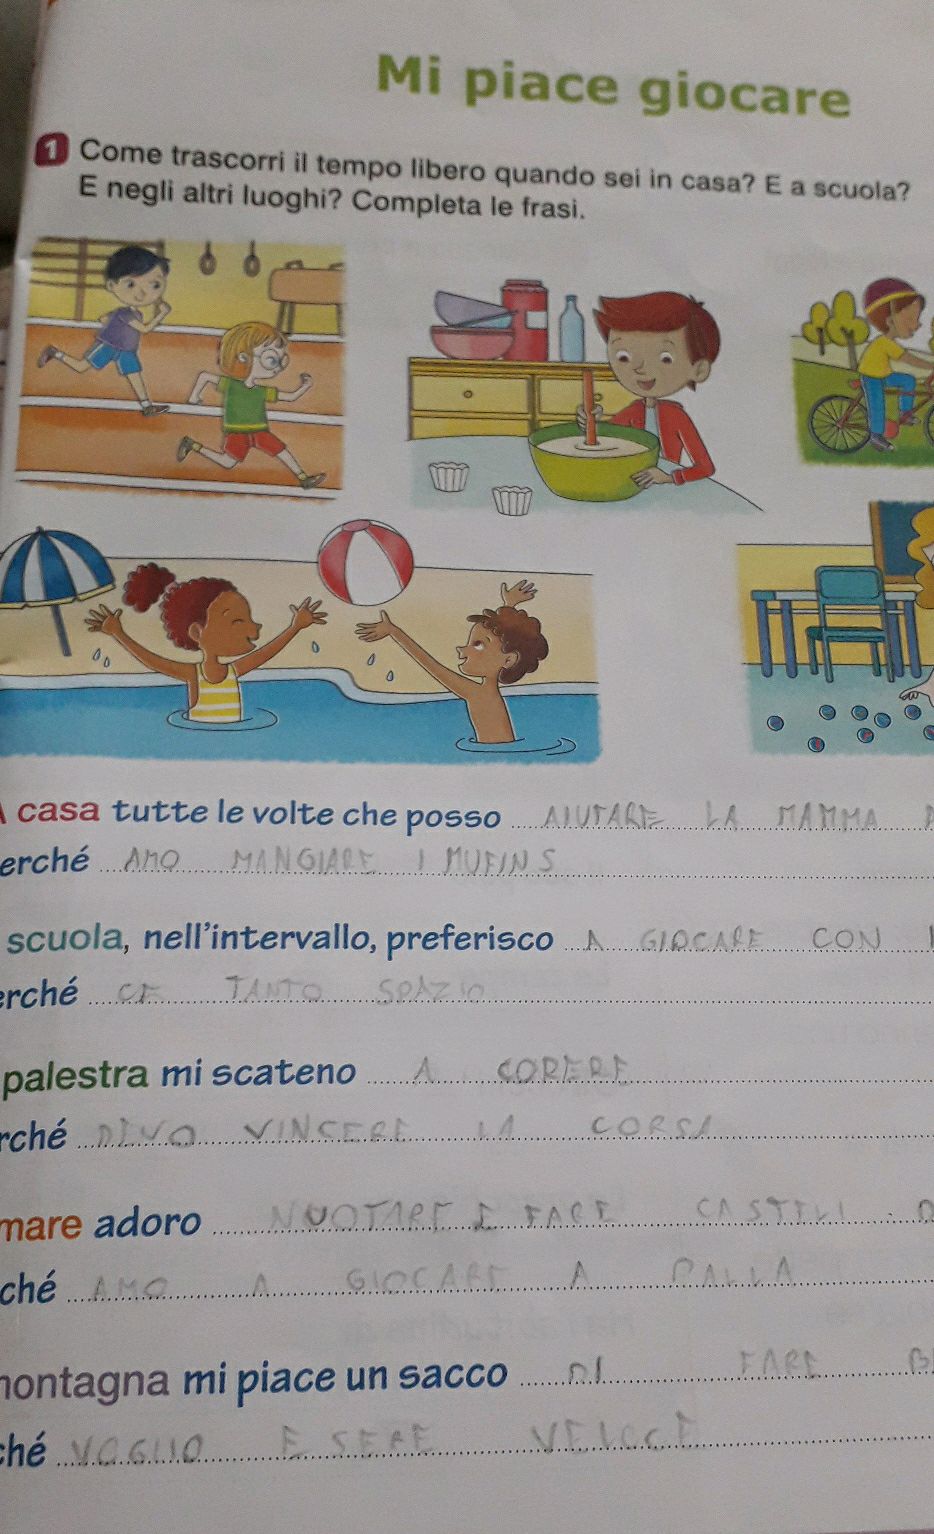 Mi piace giocare
1 Come trascorri il tempo libero quando sei in casa? E a scuola?
E negli altri luoghi? Completa le frasi.
casa tutte le volte che posso AIUTARE LA MAMMA
erché AMO MANGIARE I MUFINS
scuola, nell'intervallo, preferisco A GIOCARE CON
erché CE TANTO SPAZIO
palestra mi scateno A CORERE
rché DEVO VINCERE LA CORSA
mare adoro NUOTARE E FARE CASTELI
ché AMO A GIOCARE A PALLA
montagna mi piace un sacco DI FARE
ché VOGLIO ESERE VELOCE